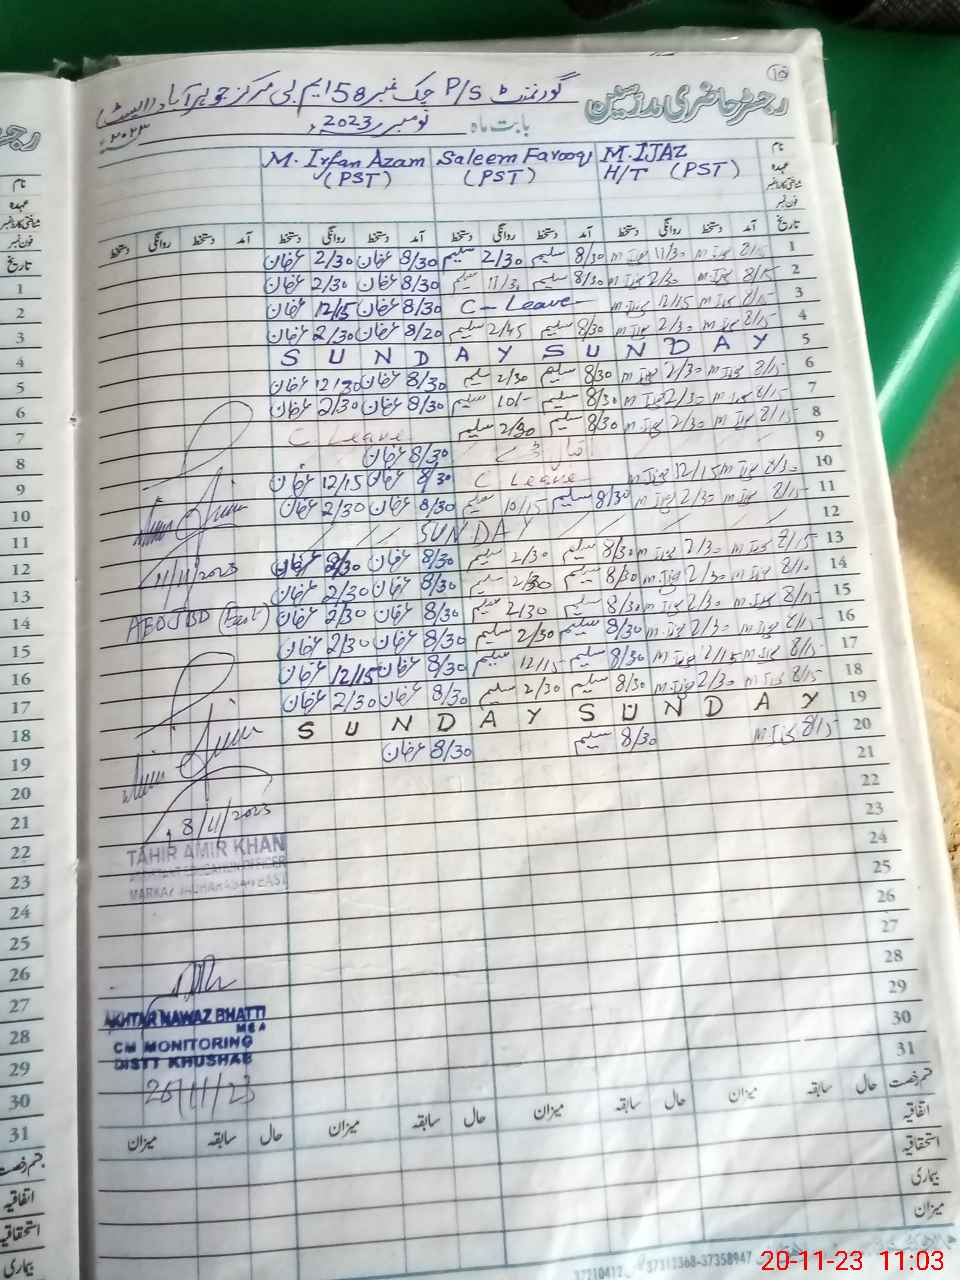 10
رجسٹر حاضری مدرسین
گورنمنٹ P/S چک نمبر 58 ایم بی مرکز جوہرآباد (ایسٹ)
بابت ماہ نومبر 2023ء
۲۰۲۳ء
نام M. IJAZ Saleem Farooq M. Irfan Azam
عہدہ H/T (PST) (PST) (PST)
شناختی کارڈ نمبر
فون نمبر
تاریخ آمد دستخط روانگی دستخط آمد دستخط روانگی دستخط آمد دستخط روانگی دستخط آمد دستخط روانگی دستخط
1 8/15 m Ijaz 11/30 m Ijaz 8/30 سلیم 2/30 سلیم 8/30 عرفان 2/30 عرفان
2 8/15 m Ijaz 2/30 m Ijaz 8/30 سلیم 11/30 سلیم 8/30 عرفان 2/30 عرفان
3 8/15 m Ijaz 12/15 m Ijaz C - Leave 8/30 عرفان 12/15 عرفان
4 8/15 m Ijaz 2/30 m Ijaz 8/30 سلیم 2/45 سلیم 8/20 عرفان 2/30 عرفان
5 S U N D A Y S U N D A Y
6 8/15 m Ijaz 2/30 m Ijaz 8/30 سلیم 2/30 سلیم 8/30 عرفان 12/30 عرفان
7 8/15 m Ijaz 2/30 m Ijaz 8/30 سلیم 10/- سلیم 8/30 عرفان 2/30 عرفان
8 8/15 m Ijaz 2/30 m Ijaz 8/30 سلیم 2/30 سلیم C Leave
9 8/30 عرفان
10 8/30 m Ijaz 12/15 m Ijaz C Leave 8/30 عرفان 12/15 عرفان
11 8/15 m Ijaz 2/30 m Ijaz 8/30 سلیم 10/15 سلیم 8/30 عرفان 2/30 عرفان
12 SUNDAY
13 8/15 m Ijaz 2/30 m Ijaz 8/30 سلیم 2/30 سلیم 8/30 عرفان 2/30 عرفان
14 8/15 m Ijaz 2/30 m Ijaz 8/30 سلیم 2/30 سلیم 8/30 عرفان 2/30 عرفان
15 8/15 m Ijaz 2/30 m Ijaz 8/30 سلیم 2/30 سلیم 8/30 عرفان 2/30 عرفان
16 8/15 m Ijaz 2/30 m Ijaz 8/30 سلیم 2/30 سلیم 8/30 عرفان 2/30 عرفان
17 8/15 m Ijaz 12/15 m Ijaz 8/30 سلیم 12/15 سلیم 8/30 عرفان 12/15 عرفان
18 8/15 m Ijaz 2/30 m Ijaz 8/30 سلیم 2/30 سلیم 8/30 عرفان 2/30 عرفان
19 S U N D A Y S U N D A Y
20 8/15 m Ijaz 8/30 سلیم 8/30 عرفان
21
22
23
24
25
26
27
28
29
30
31
11/11/2023
AEO JBD (East)
18/11/2023
TAHIR AMIR KHAN
ASSISTANT EDUCATION OFFICER
MARKAZ JAUHARABAD EAST
AKHTAR NAWAZ BHATTI
MEA
CM MONITORING
DISTT KHUSHAB
20/11/23
قسم رخصت حال سابقہ میزان حال سابقہ میزان حال سابقہ میزان حال سابقہ میزان
اتفاقیہ
استحقاقیہ
بیماری
میزان
37210412 37313368-37358947
نام
عہدہ
شناختی کارڈ نمبر
فون نمبر
تاریخ
1
2
3
4
5
6
7
8
9
10
11
12
13
14
15
16
17
18
19
20
21
22
23
24
25
26
27
28
29
30
31
قسم رخصت
اتفاقیہ
استحقاقیہ
بیماری
20-11-23 11:03